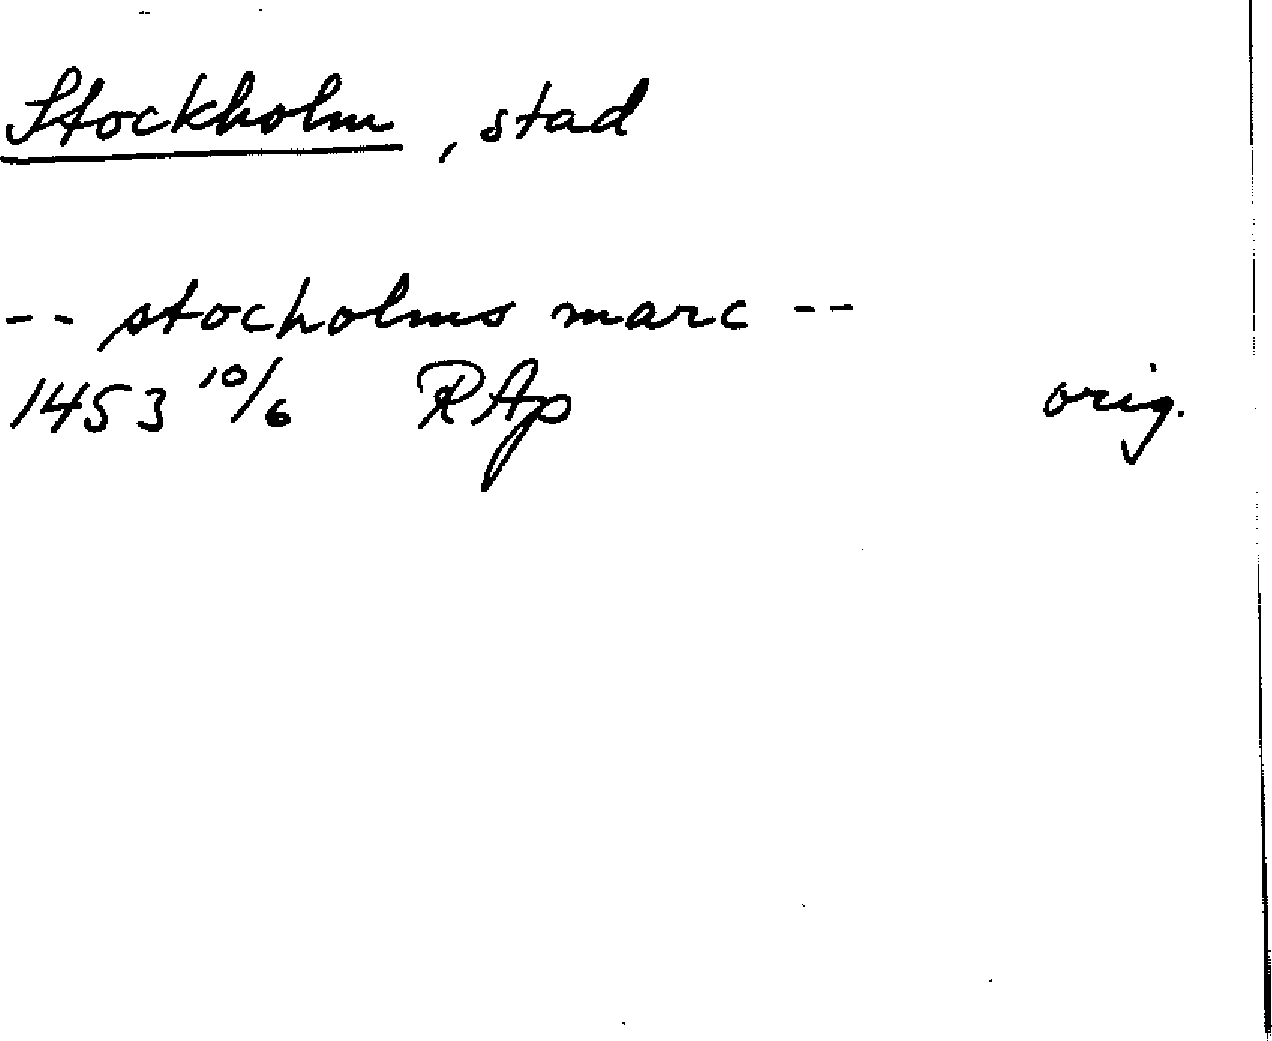 Stockholm, stad
-- stocholms marc --
1453 10/6 RAp orig.